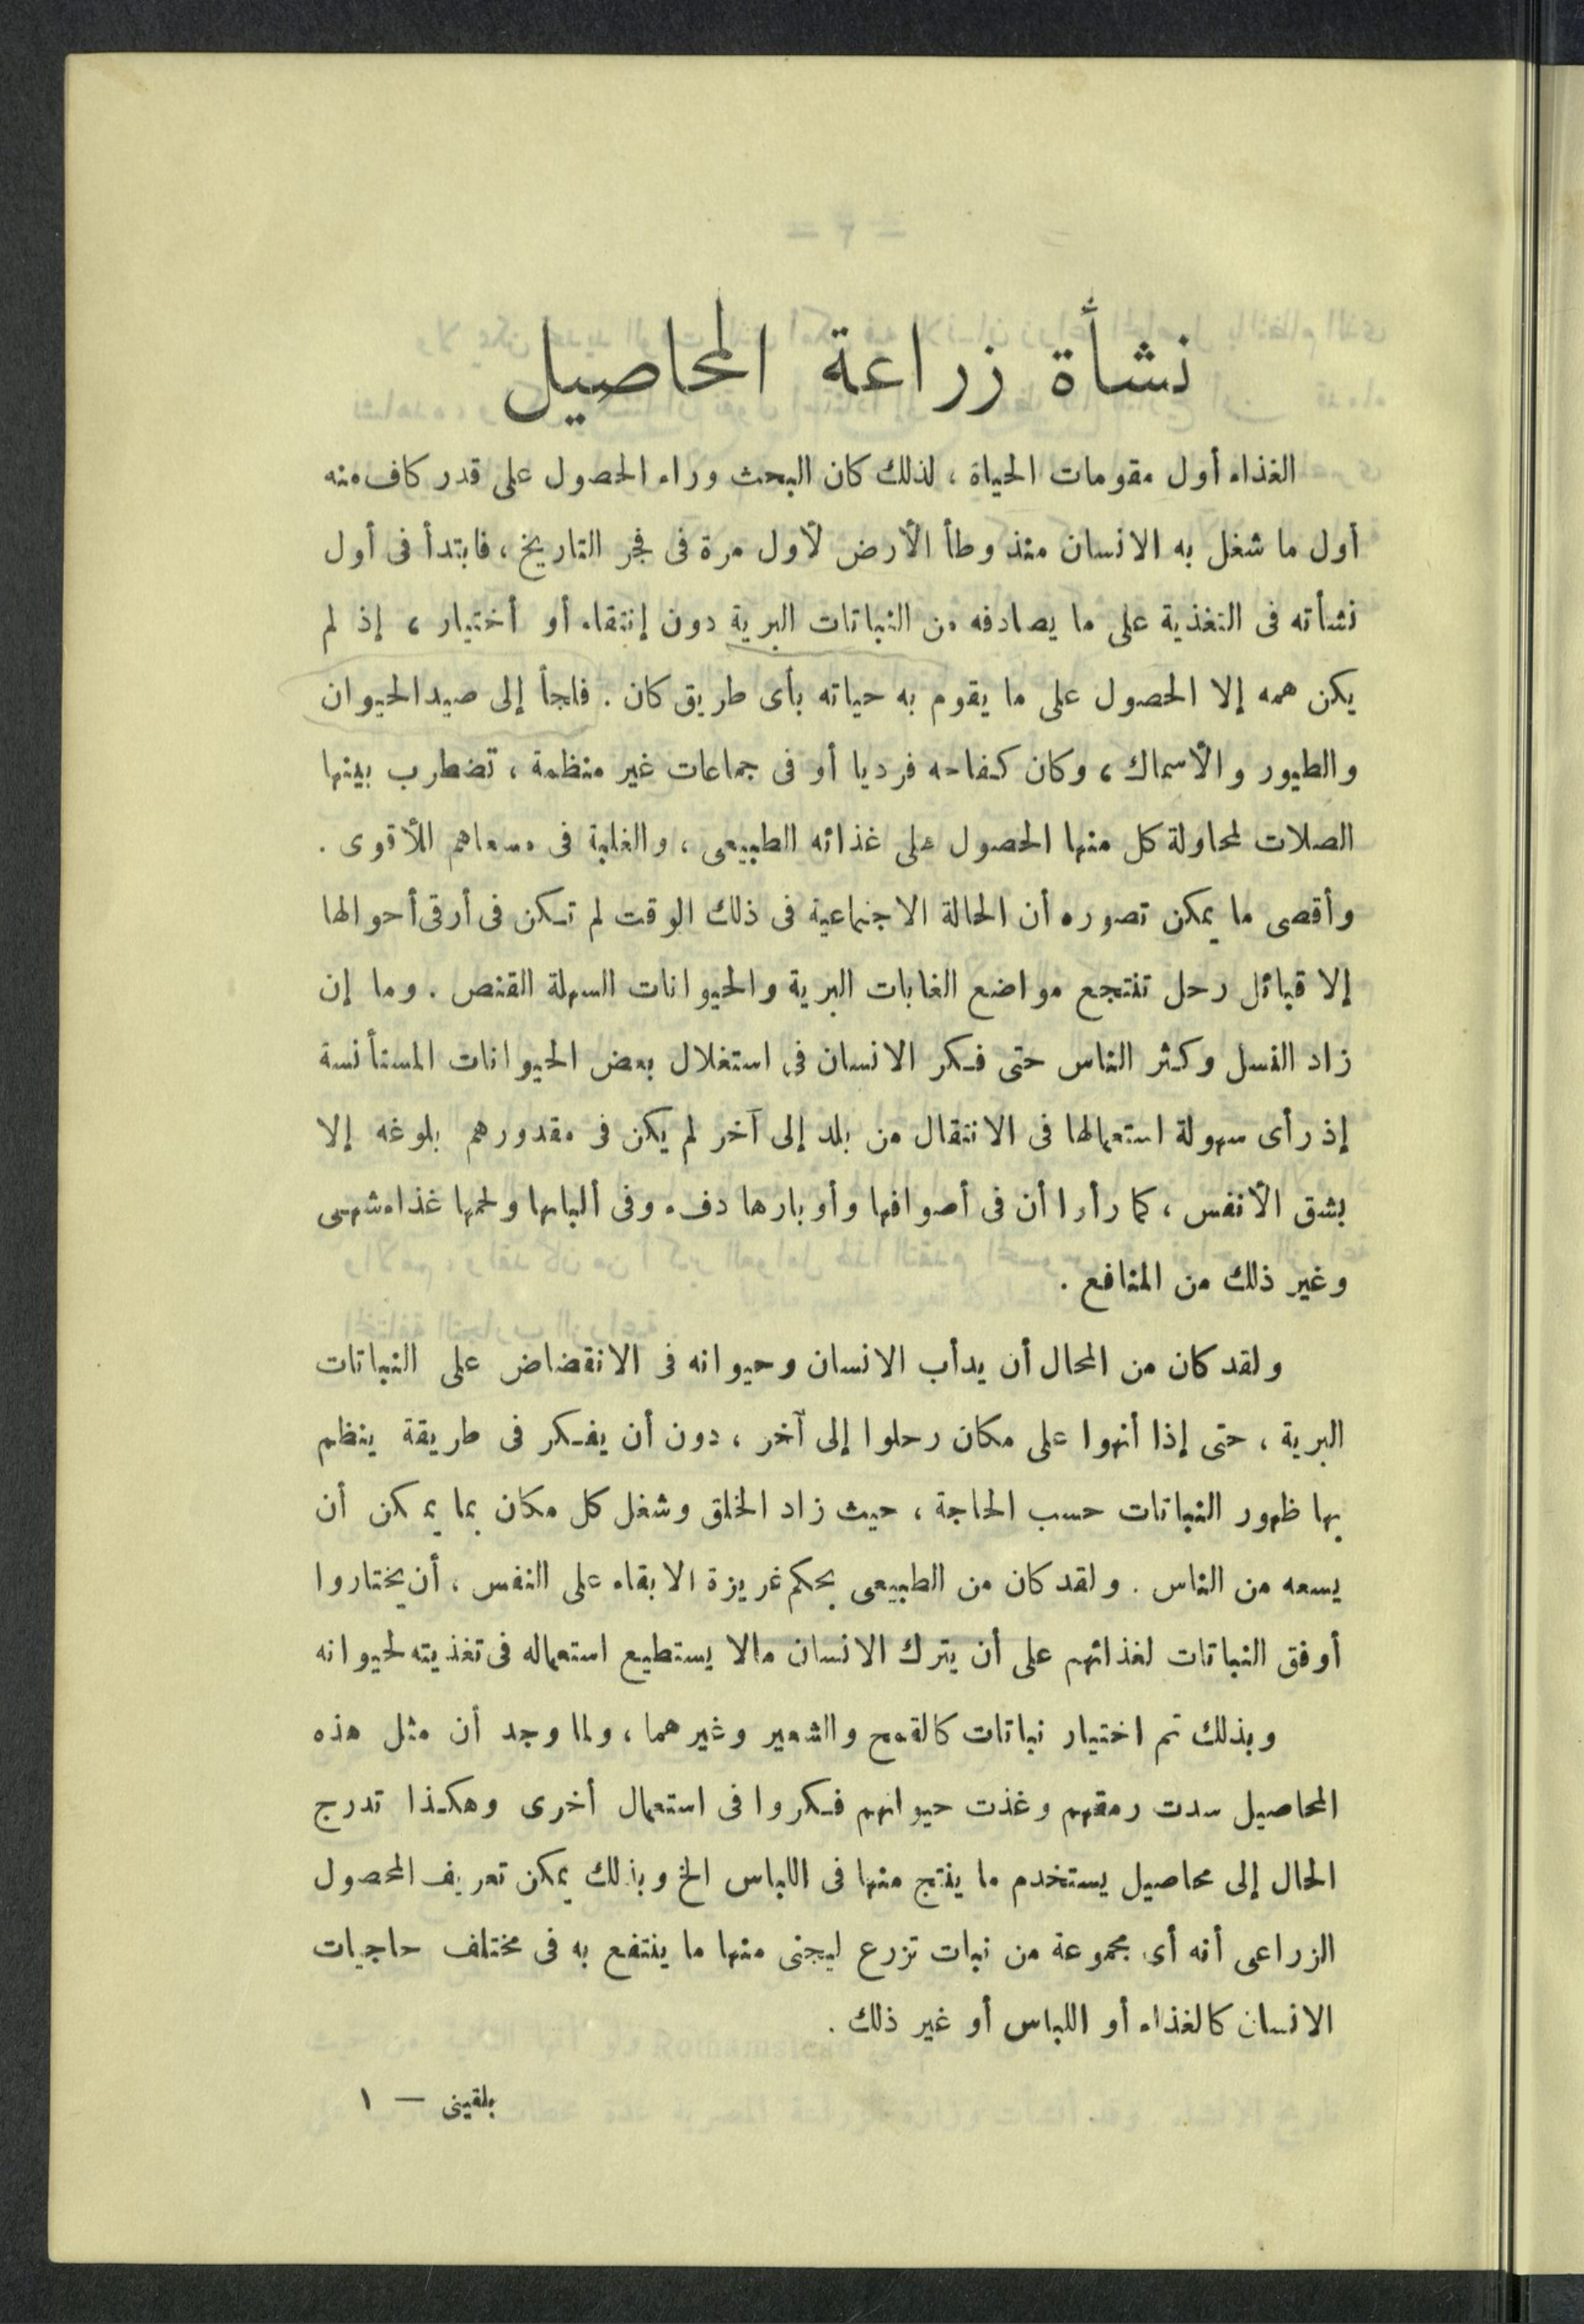 نشأة زراعة المحاصيل
الغذاء أول مقومات الحياة ، لذلك كان البحث وراء الحصول على قدر كاف منه
أول ما شغل به الانسان منذ وطأ الأرض لأول مرة فى فجر التاريخ ، فابتدأ فى أول
نشأته فى التغذية على ما يصادفه من النباتات البرية دون إنتقاء أو أختيار ، إذ لم
يكن همه إلا الحصول على ما يقوم به حياته بأى طريق كان . فلجأ إلى صيد الحيوان
والطيور والأسماك ، وكان كفاحه فرديا أو فى جماعات غير منظمة ، تضطرب بينها
الصلات لمحاولة كل منها الحصول على غذائه الطبيعى ، والغلبة فى مسعاهم للأقوى .
وأقصى ما يمكن تصوره أن الحالة الاجتماعية فى ذلك الوقت لم تكن فى أرقى أحوالها
إلا قبائل رحل تنتجع مواضع الغابات البرية والحيوانات السهلة القنص . وما إن
زاد النسل وكثر الناس حتى فكر الانسان فى استغلال بعض الحيوانات المستأنسة
إذ رأى سهولة استعمالها فى الانتقال من بلد إلى آخر لم يكن فى مقدورهم بلوغه إلا
بشق الأنفس ، كما رأوا أن فى أصوافها وأوبارها دفء وفى ألبانها ولحمها غذاء شهى
وغير ذلك من المنافع .
ولقد كان من المحال أن يدأب الانسان وحيوانه فى الانقضاض على النباتات
البرية ، حتى إذا أنهوا على مكان رحلوا إلى آخر ، دون أن يفكر فى طريقة ينظم
بها ظهور النباتات حسب الحاجة ، حيث زاد الخلق وشغل كل مكان بما يمكن أن
يسعه من الناس . ولقد كان من الطبيعى بحكم غريزة الابقاء على النفس ، أن يختاروا
أوفق النباتات لغذائهم على أن يترك الانسان مالا يستطيع استعماله فى تغذيته لحيوانه
وبذلك تم اختيار نباتات كالقمح والشعير وغيرهما ، ولما وجد أن مثل هذه
المحاصيل سدت رمقهم وغذت حيوانهم فكروا فى استعمال أخرى وهكذا تدرج
الحال إلى محاصيل يستخدم ما ينتج منها فى اللباس الخ وبذلك يمكن تعريف المحصول
الزراعى أنه أى مجموعة من نبات تزرع ليجنى منها ما ينتفع به فى مختلف حاجيات
الانسان كالغذاء أو اللباس أو غير ذلك .
بلقينى — ١